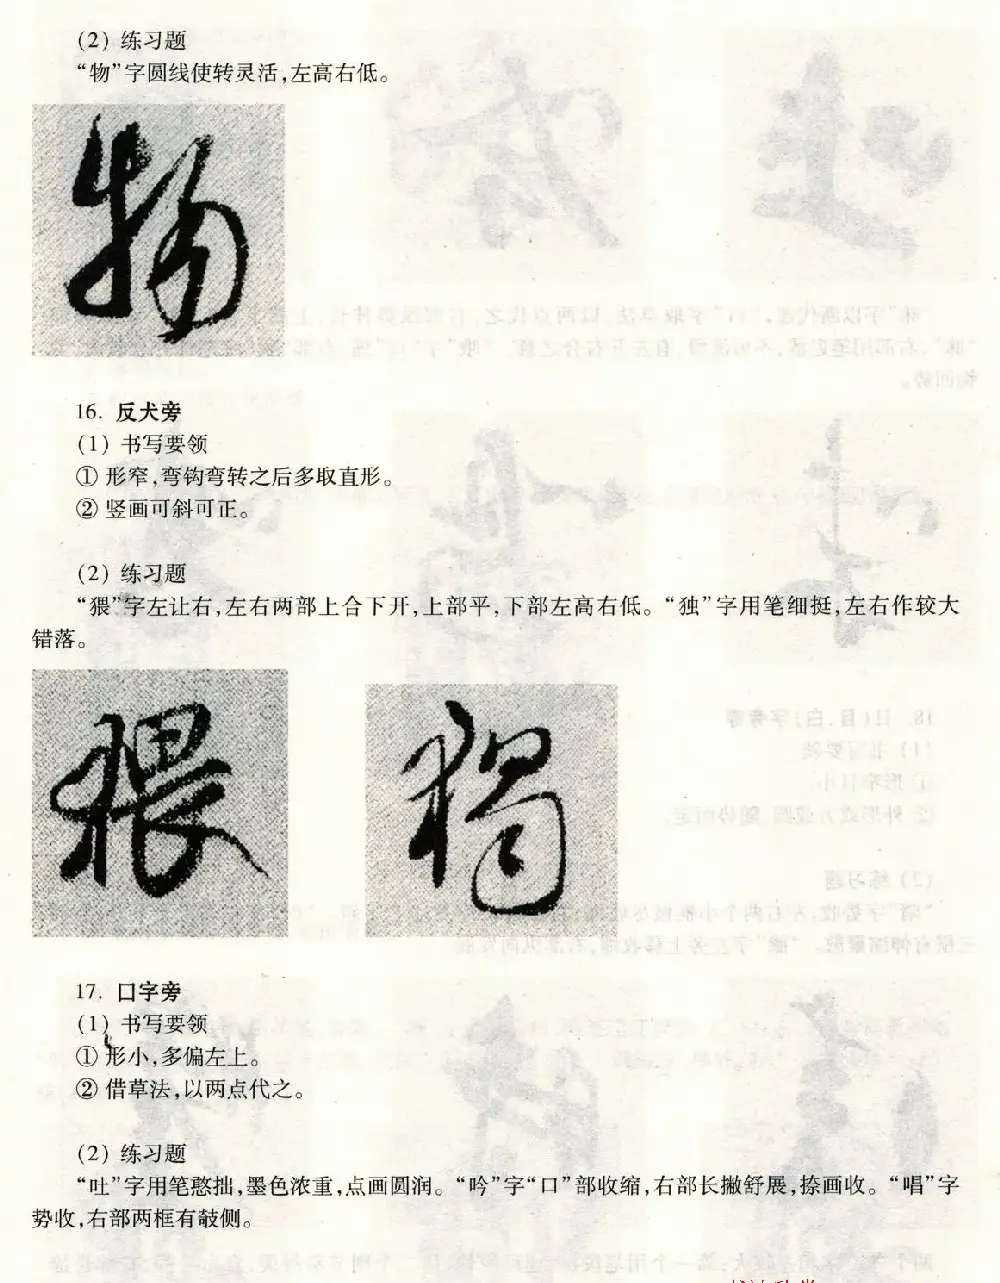 (2) 练习题
“物”字圆线使转灵活,左高右低。
物
16. 反犬旁
(1) 书写要领
① 形窄,弯钩弯转之后多取直形。
② 竖画可斜可正。
(2) 练习题
“猥”字左让右,左右两部上合下开,上部平,下部左高右低。“独”字用笔细挺,左右作较大
错落。
猥 獨
17. 口字旁
(1) 书写要领
① 形小,多偏左上。
② 借草法,以两点代之。
(2) 练习题
“吐”字用笔憨拙,墨色浓重,点画圆润。“吟”字“口”部收缩,右部长撇舒展,捺画收。“唱”字
势收,右部两框有敧侧。